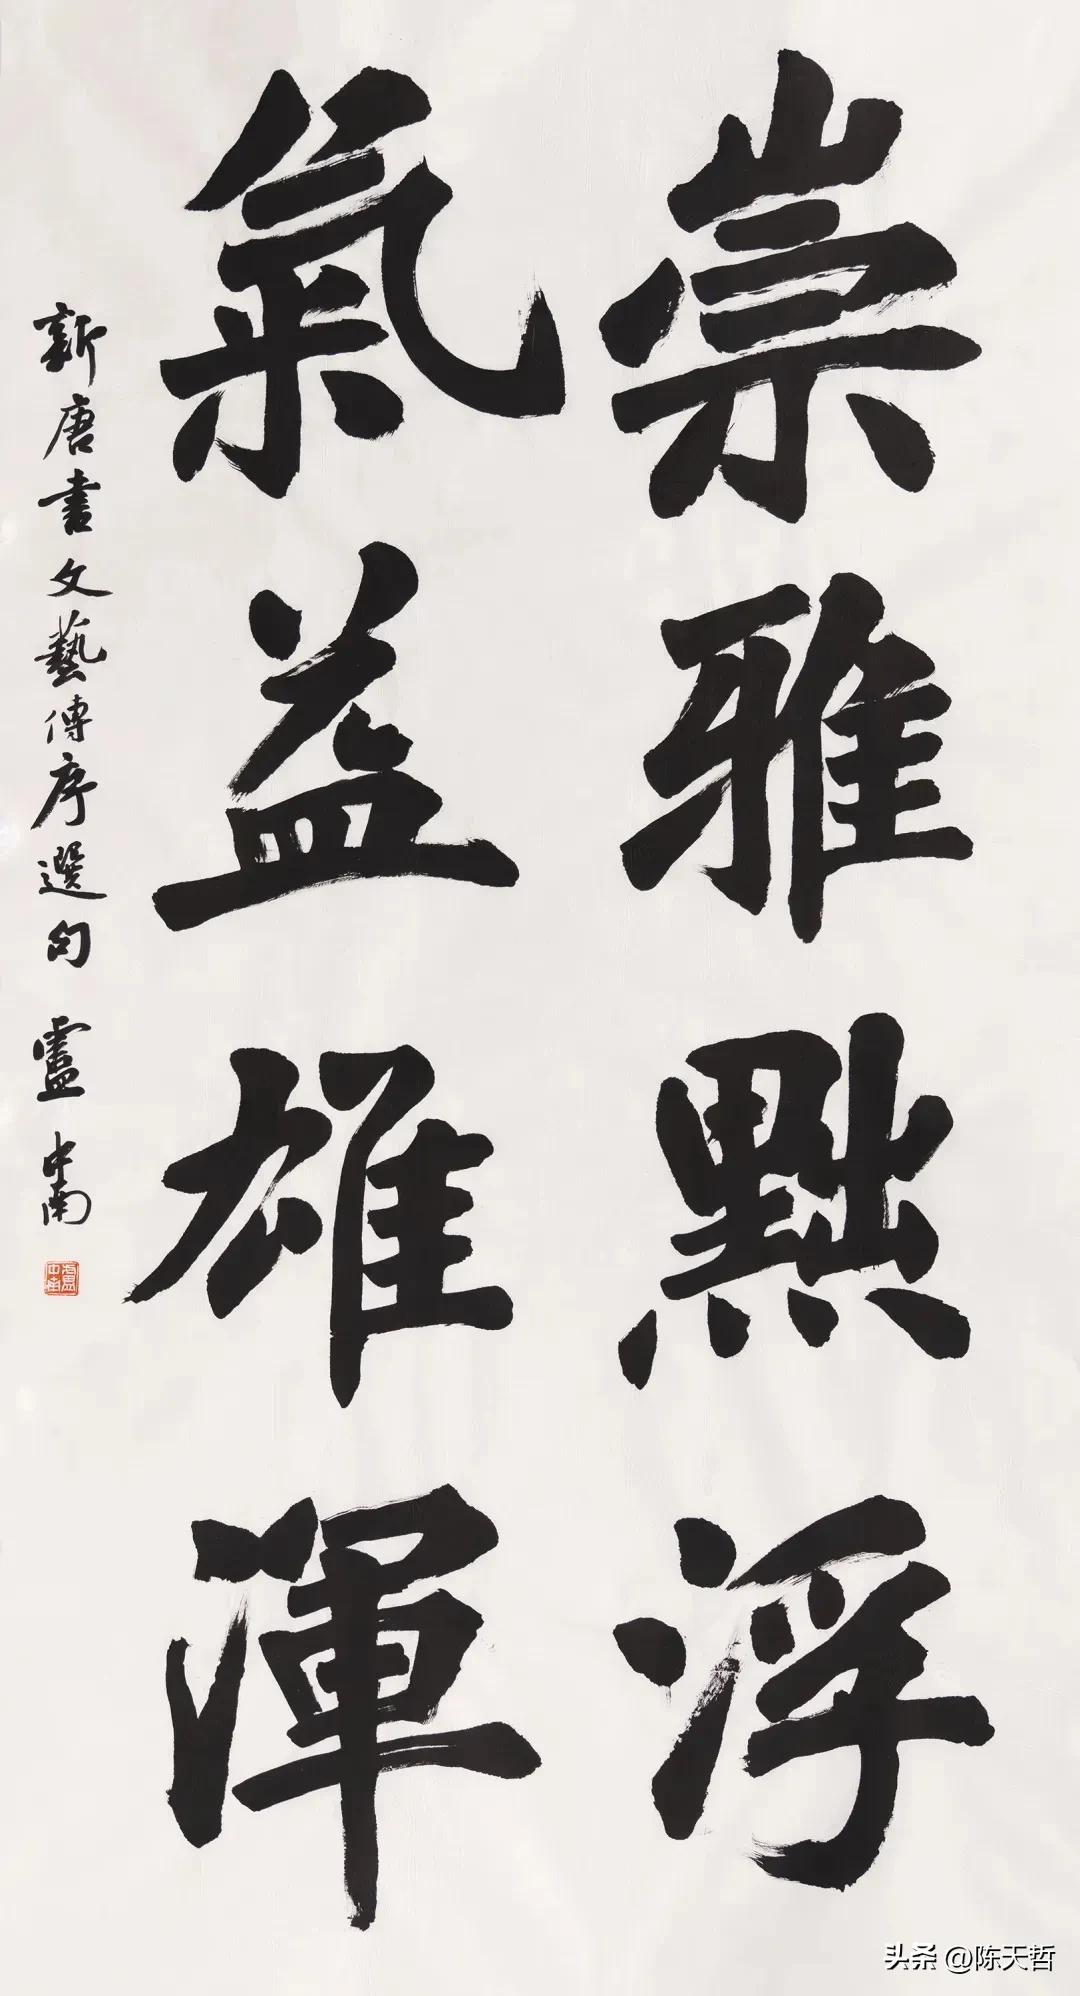 崇雅黜浮
氣益雄渾
新唐書文藝傳序選句 盧中南
盧中南
头条 @陈天哲